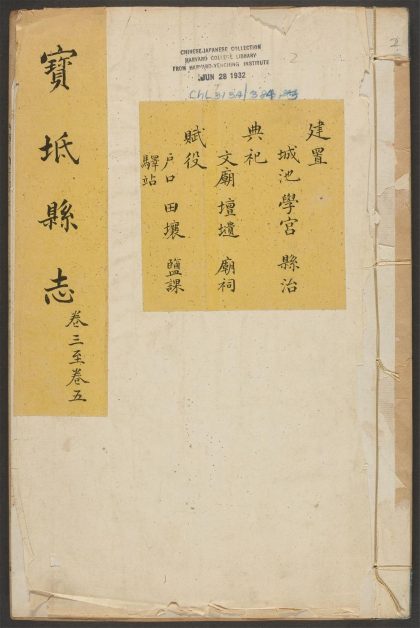 CHINESE-JAPANESE COLLECTION
HARVARD COLLEGE LIBRARY
FROM HARVARD-YENCHING INSTITUTE
JUN 28 1932
2
寶坻縣志
卷三至卷五
建置
城池 學宮 縣治
典祀
文廟 壇壝 廟祠
賦役
戶口 田壤 鹽課
驛站